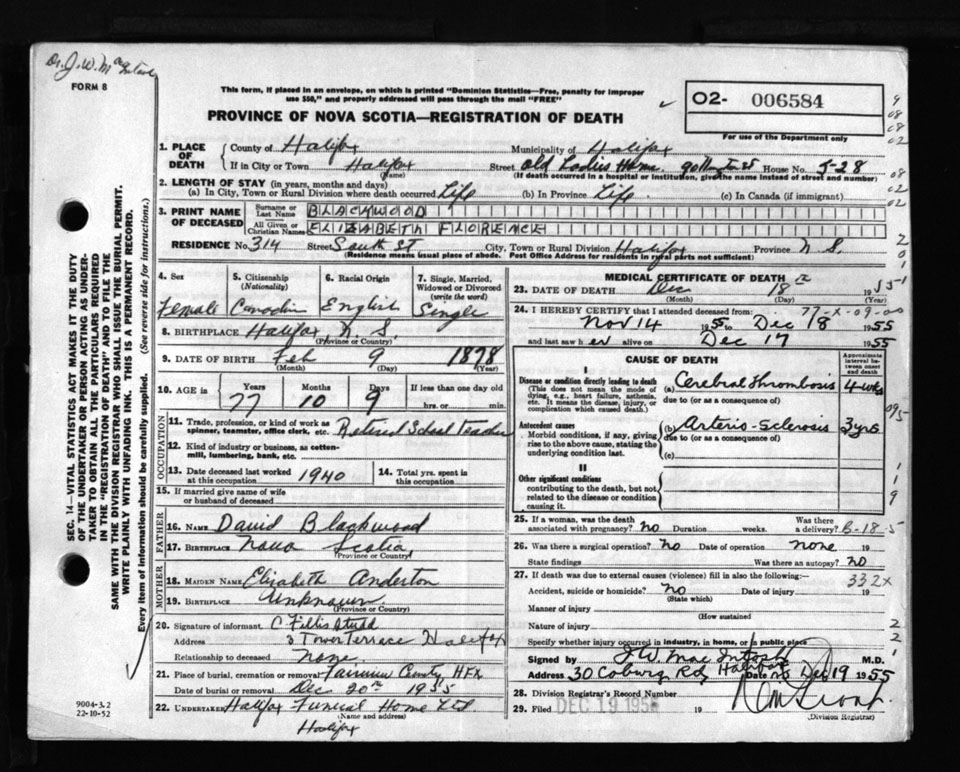 Dr. J. W. MacIntosh
FORM 8
This form, if placed in an envelope, on which is printed "Dominion Statistics—Free, penalty for improper
use $50," and properly addressed will pass through the mail "FREE"
PROVINCE OF NOVA SCOTIA—REGISTRATION OF DEATH
O2- 006584
For use of the Department only
1. PLACE OF DEATH
County of Halifax Municipality of Halifax
If in City or Town Halifax Street Old Ladies Home House No. 5-28
(Name) (If death occurred in a hospital or institution, give the name instead of street and number)
2. LENGTH OF STAY (in years, months and days)
(a) In City, Town or Rural Division where death occurred Life (b) In Province Life (c) In Canada (if immigrant)
3. PRINT NAME OF DECEASED
Surname or Last Name BLACKWOOD
All Given or Christian Names ELIZABETH FLORENCE
RESIDENCE No. 314 Street South St City, Town or Rural Division Halifax Province N. S.
(Residence means usual place of abode. Post Office Address for residents in rural parts not sufficient)
4. Sex
Female
5. Citizenship (Nationality)
Canadian
6. Racial Origin
English
7. Single, Married, Widowed or Divorced (write the word)
Single
8. BIRTHPLACE Halifax N S
(Province or Country)
9. DATE OF BIRTH Feb 9 1878
(Month) (Day) (Year)
10. AGE in Years Months Days If less than one day old
77 10 9 hrs. or min.
OCCUPATION
11. Trade, profession, or kind of work as
spinner, teamster, office clerk, etc. Retired School Teacher
12. Kind of industry or business, as cotton-
mill, lumbering, bank, etc.
13. Date deceased last worked
at this occupation 1940
14. Total yrs. spent in
this occupation
15. If married give name of wife
or husband of deceased
FATHER
16. NAME David Blackwood
17. BIRTHPLACE Nova Scotia
(Province or Country)
MOTHER
18. MAIDEN NAME Elizabeth Anderton
19. BIRTHPLACE Unknown
(Province or Country)
20. Signature of informant C. Fillis Studd
Address 3 Tower Terrace Halifax
Relationship to deceased none
21. Place of burial, cremation or removal Fairview Cemetery HFX
Date of burial or removal Dec 20th 1955
22. UNDERTAKER Halifax Funeral Home Ltd
(Name and address)
Halifax
MEDICAL CERTIFICATE OF DEATH
23. DATE OF DEATH Dec 18th 1955
(Month) (Day) (Year)
24. I HEREBY CERTIFY that I attended deceased from:
77-X-09-00
Nov 14 1955 to Dec 18 1955
and last saw her alive on Dec 17 1955
CAUSE OF DEATH
Approximate interval between onset and death
I
Disease or condition directly leading to death
(This does not mean the mode of
dying, e.g., heart failure, asthenia,
etc. It means the disease, injury, or
complication which caused death.)
(a) Cerebral Thrombosis 4 wks
due to (or as a consequence of)
Antecedent causes
Morbid conditions, if any, giving
rise to the above cause, stating the
underlying condition last.
(b) Arterio-Sclerosis 3 yrs
due to (or as a consequence of)
(c)
II
Other significant conditions
contributing to the death, but not
related to the disease or condition
causing it.
25. If a woman, was the death
associated with pregnancy? No Duration weeks. Was there a delivery? B-18-5
26. Was there a surgical operation? No Date of operation none 19
State findings Was there an autopsy? NO
27. If death was due to external causes (violence) fill in also the following:—
332X
Accident, suicide or homicide? No Date of injury 19
(State which)
Manner of injury
(How sustained)
Nature of injury
Specify whether injury occurred in industry, in home, or in public place
Signed by J W MacIntosh M.D.
Address 30 Coburg Rd Halifax Date Dec 19 1955
28. Division Registrar's Record Number
29. Filed DEC 19 1955 19
(Division Registrar)
SEC. 14—VITAL STATISTICS ACT MAKES IT THE DUTY
OF THE UNDERTAKER OR PERSON ACTING AS UNDER-
TAKER TO OBTAIN ALL THE PARTICULARS REQUIRED
IN THE "REGISTRATION OF DEATH" AND TO FILE THE
SAME WITH THE DIVISION REGISTRAR WHO SHALL ISSUE THE BURIAL PERMIT.
WRITE PLAINLY WITH UNFADING INK. THIS IS A PERMANENT RECORD.
Every item of information should be carefully supplied. (See reverse side for instructions.)
9004-3.2
22-10-52